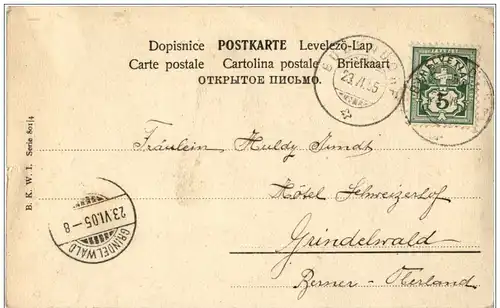 Dopisnice POSTKARTE Levelező-Lap
Carte postale Cartolina postale Briefkaart
ОТКРЫТОЕ ПИСЬМО.
23.VI.05
HELVETIA
5
B. K. W. I. Serie 801/4
Fräulein Huldy
Hôtel Schweizerhof
Grindelwald
Berner-Oberland
23.VI.05-8
GRINDELWALD